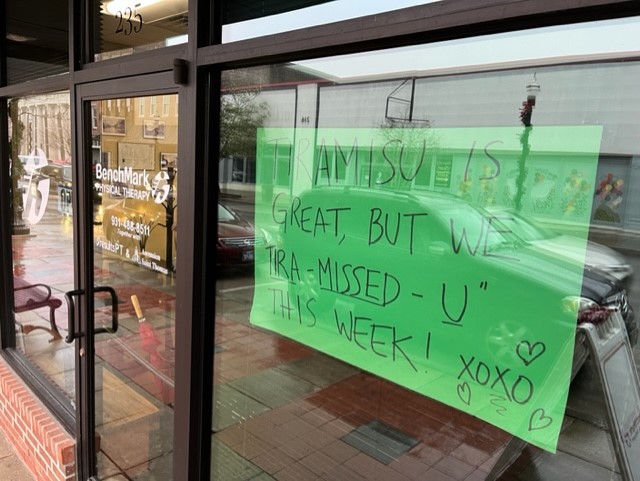 235
BenchMark
PHYSICAL THERAPY
931-488-8511
TIRAMISU IS
GREAT, BUT WE
TIRA-MISSED-U"
THIS WEEK!
XOXO